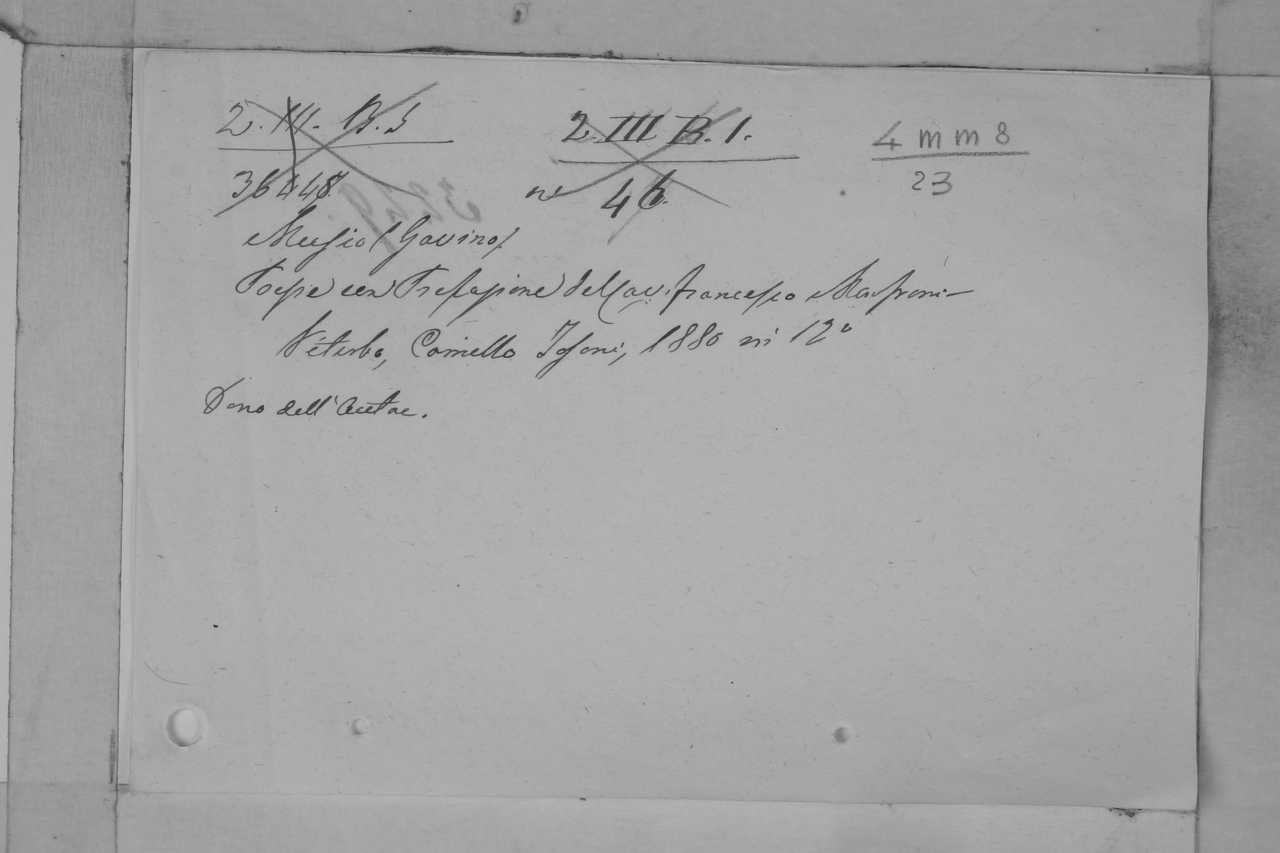 2. III. B. 5   2 III B. 1.   4 m m 8
36448   n° 46.   23
Mussio (Gavino)
Poesie con Prefazione del Cav. Francesco
Viterbo, Cornelio Tosoni, 1880 in 12°
Dono dell'Autore.